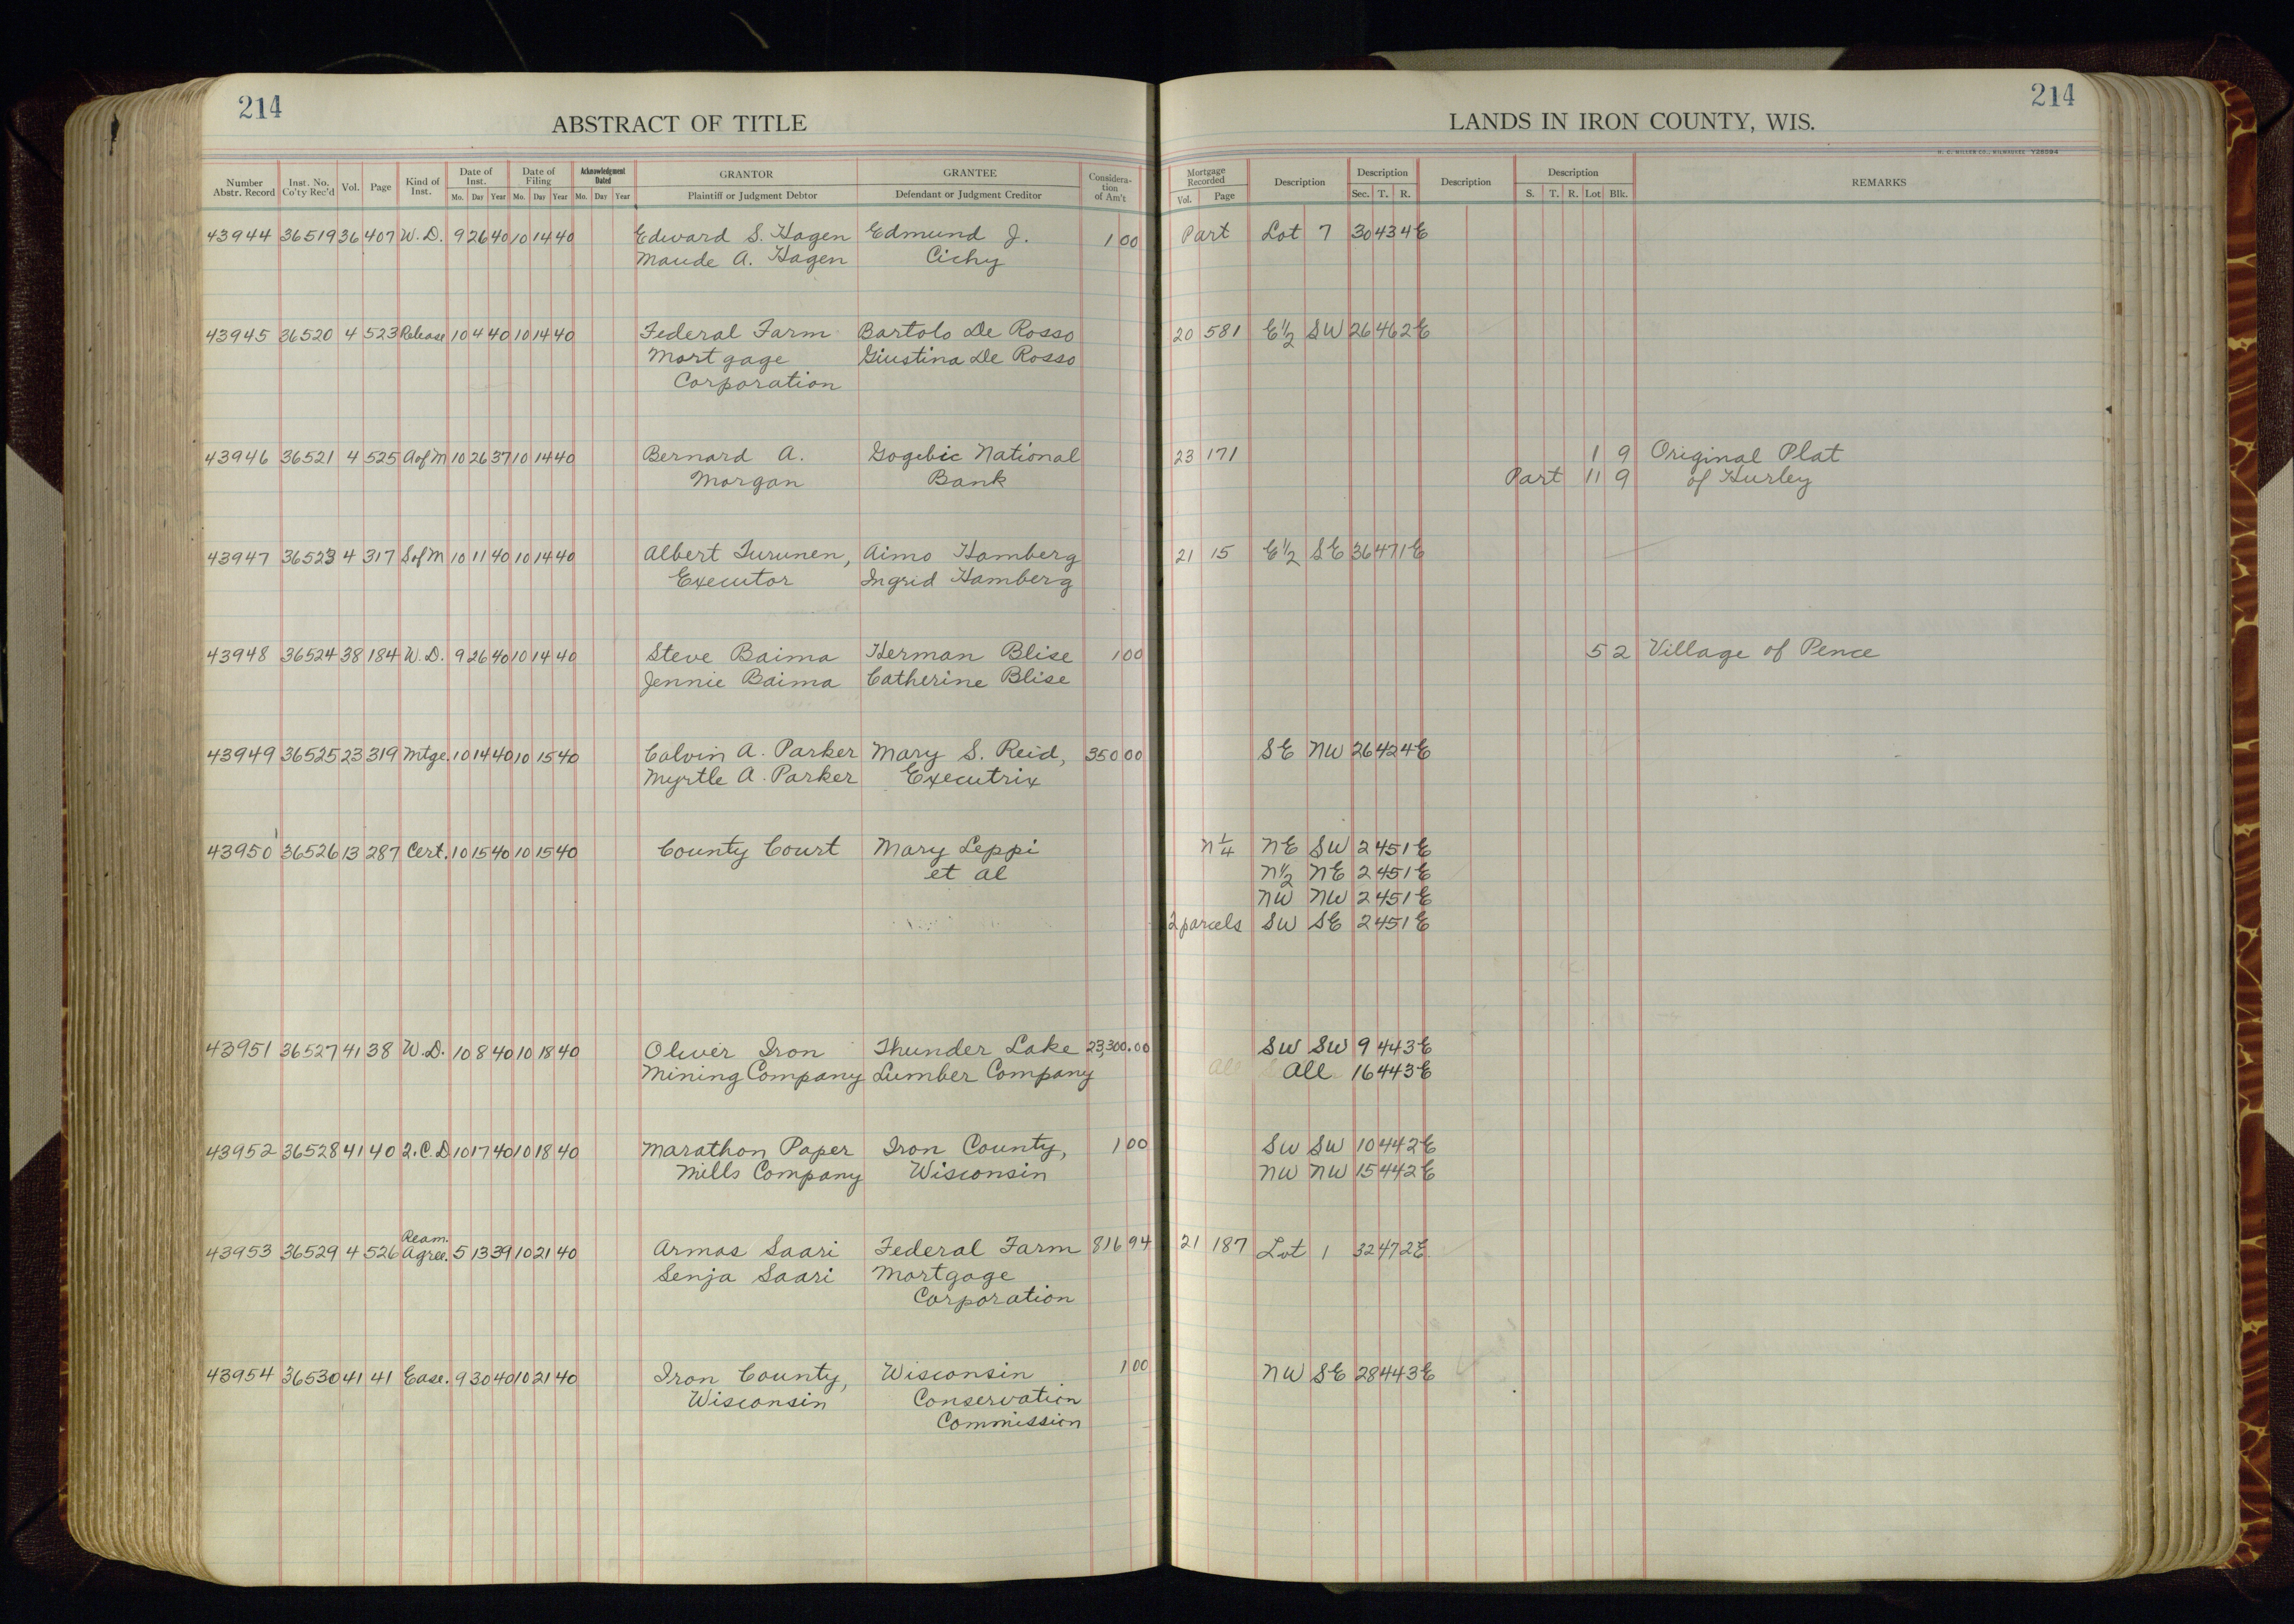 214
ABSTRACT OF TITLE
Number Abstr. Record | Inst. No. Co'ty Rec'd | Vol. | Page | Kind of Inst. | Date of Inst. Mo. Day Year | Date of Filing Mo. Day Year | Acknowledgment Dated Mo. Day Year | GRANTOR Plaintiff or Judgment Debtor | GRANTEE Defendant or Judgment Creditor | Consideration of Am't
214
LANDS IN IRON COUNTY, WIS.
H. C. MILLER CO., MILWAUKEE Y28594
Mortgage Recorded Vol. Page | Description | Description Sec. T. R. | Description | Description S. T. R. Lot Blk. | REMARKS
43944 36519 36 407 W.D. 9 26 40 10 14 40 Edward S. Hagen Edmund J. 1 00 Part Lot 7 30 43 4E
Maude A. Hagen Cichy
43945 36520 4 523 Release 10 4 40 10 14 40 Federal Farm Bartolo De Rosso 20 581 E½ SW 26 46 2E
Mortgage Giustina De Rosso
Corporation
43946 36521 4 525 A of M 10 26 37 10 14 40 Bernard A. Gogebic National 23 171 1 9 Original Plat
Morgan Bank Part 11 9 of Hurley
43947 36523 4 317 S of M 10 11 40 10 14 40 Albert Turunen, Aimo Hamberg 21 15 E½ SE 36 47 1E
Executor Ingrid Hamberg
43948 36524 38 184 W.D. 9 26 40 10 14 40 Steve Baima Herman Blise 1 00 5 2 Village of Pence
Jennie Baima Catherine Blise
43949 36525 23 319 Mtge. 10 14 40 10 15 40 Calvin A. Parker Mary S. Reid, 350 00 SE NW 26 42 4E
Myrtle A. Parker Executrix
43950 36526 13 287 Cert. 10 15 40 10 15 40 County Court Mary Leppi N¼ NE SW 2 45 1E
et al N½ NE 2 45 1E
NW NW 2 45 1E
2 parcels SW SE 2 45 1E
43951 36527 41 38 W.D. 10 8 40 10 18 40 Oliver Iron Thunder Lake 23,300.00 SW SW 9 44 3E
Mining Company Lumber Company All All 16 44 3E
43952 36528 41 40 Q.C.D 10 17 40 10 18 40 Marathon Paper Iron County, 1 00 SW SW 10 44 2E
Mills Company Wisconsin NW NW 15 44 2E
Ream.
43953 36529 4 526 Agree. 5 13 39 10 21 40 Armas Saari Federal Farm 816 94 21 187 Lot 1 32 47 2E
Senja Saari Mortgage
Corporation
43954 36530 41 41 Ease. 9 30 40 10 21 40 Iron County, Wisconsin 1 00 NW SE 28 44 3E
Wisconsin Conservation
Commission